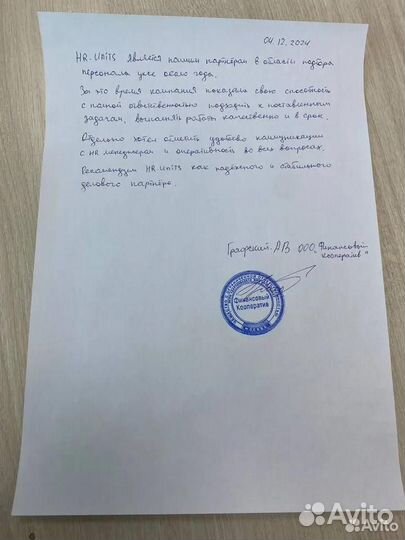 04.12.2024
HR.Units является нашим партнёром в области подбора
персонала уже около года.
За это время компания показала свою способность
с полной ответственностью подходить к поставленным
задачам, выполнять работы качественно и в срок.
Отдельно хотел отметить удобство коммуникации
с HR менеджерам и оперативность во всех вопросах.
Рекомендуем HR.Units как надёжного и стабильного
делового партнёра.
Графский. АВ ООО „Финансовый
кооператив"
Финансовый
Кооператив
МОСКВА
Avito
Avito